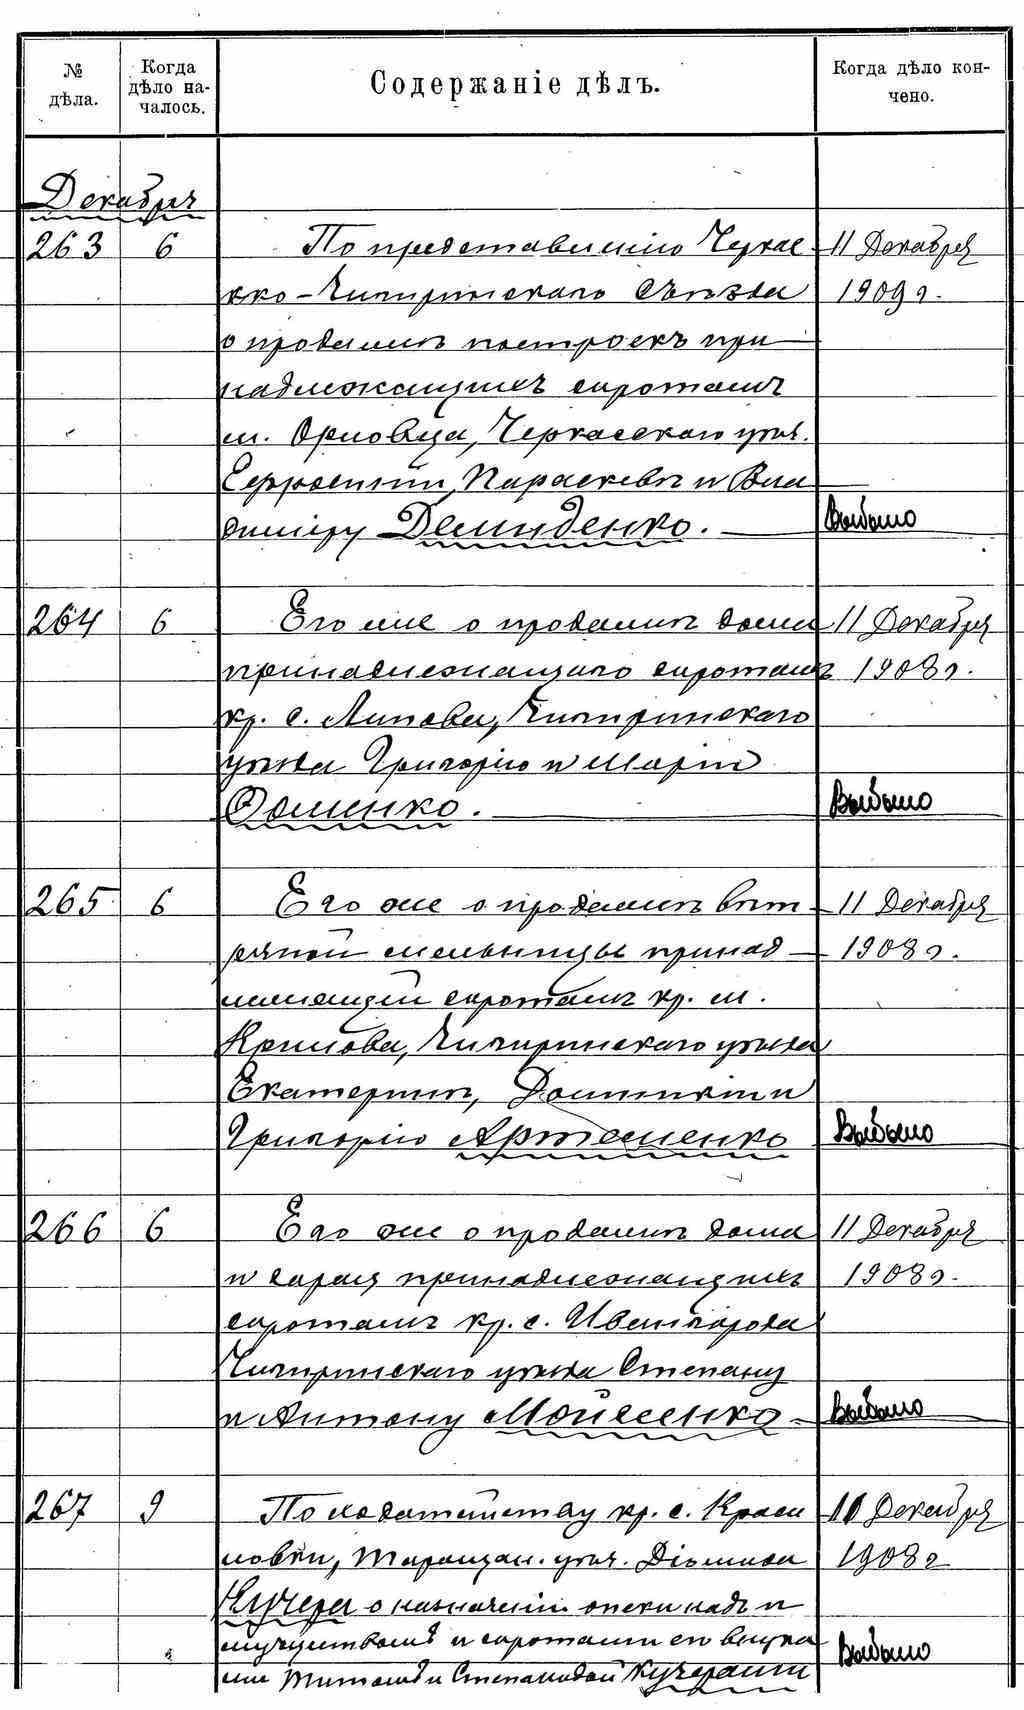 № дѣла. Когда дѣло на-чалось. Содержаніе дѣлъ. Когда дѣло кон-чено.
Декабря
263 6 По представленію Черкас- 11 Декабря
ско-Чигиринскаго Съѣзда 1909 г.
о продажѣ построекъ при
надлежащихъ сиротамъ
м. Орловца, Черкасскаго уѣз.
Ефросиніи, Параскевѣ и Вла
диміру Демиденко. Выбыло
264 6 Его же о продажѣ дома 11 Декабря
принадлежащаго сиротамъ 1908 г.
кр. с. Липова, Чигиринскаго
уѣзда Григорію и Маріи
Оменко. Выбыло
265 6 Его же о продажѣ вѣт 11 Декабря
ряной мельницы принад 1908 г.
лежащей сиротамъ кр. м.
Крилова, Чигиринскаго уѣзда
Екатеринѣ, и
Григорію Артеменко Выбыло
266 6 Его же о продажѣ дома 11 Декабря
и сарая принадлежащихъ 1908 г.
сиротамъ кр. с. Ивангорода
Чигиринскаго уѣзда Степану
и Антону Мойсеенко Выбыло
267 9 По ходатайству кр. с. Краси 11 Декабря
ловки, Таращан. уѣз. Діомида 1908 г
Кучера о назначеніи опеки надъ и
муществомъ и сиротами его внука
ми Титомъ и Степанидой Кучерами Выбыло